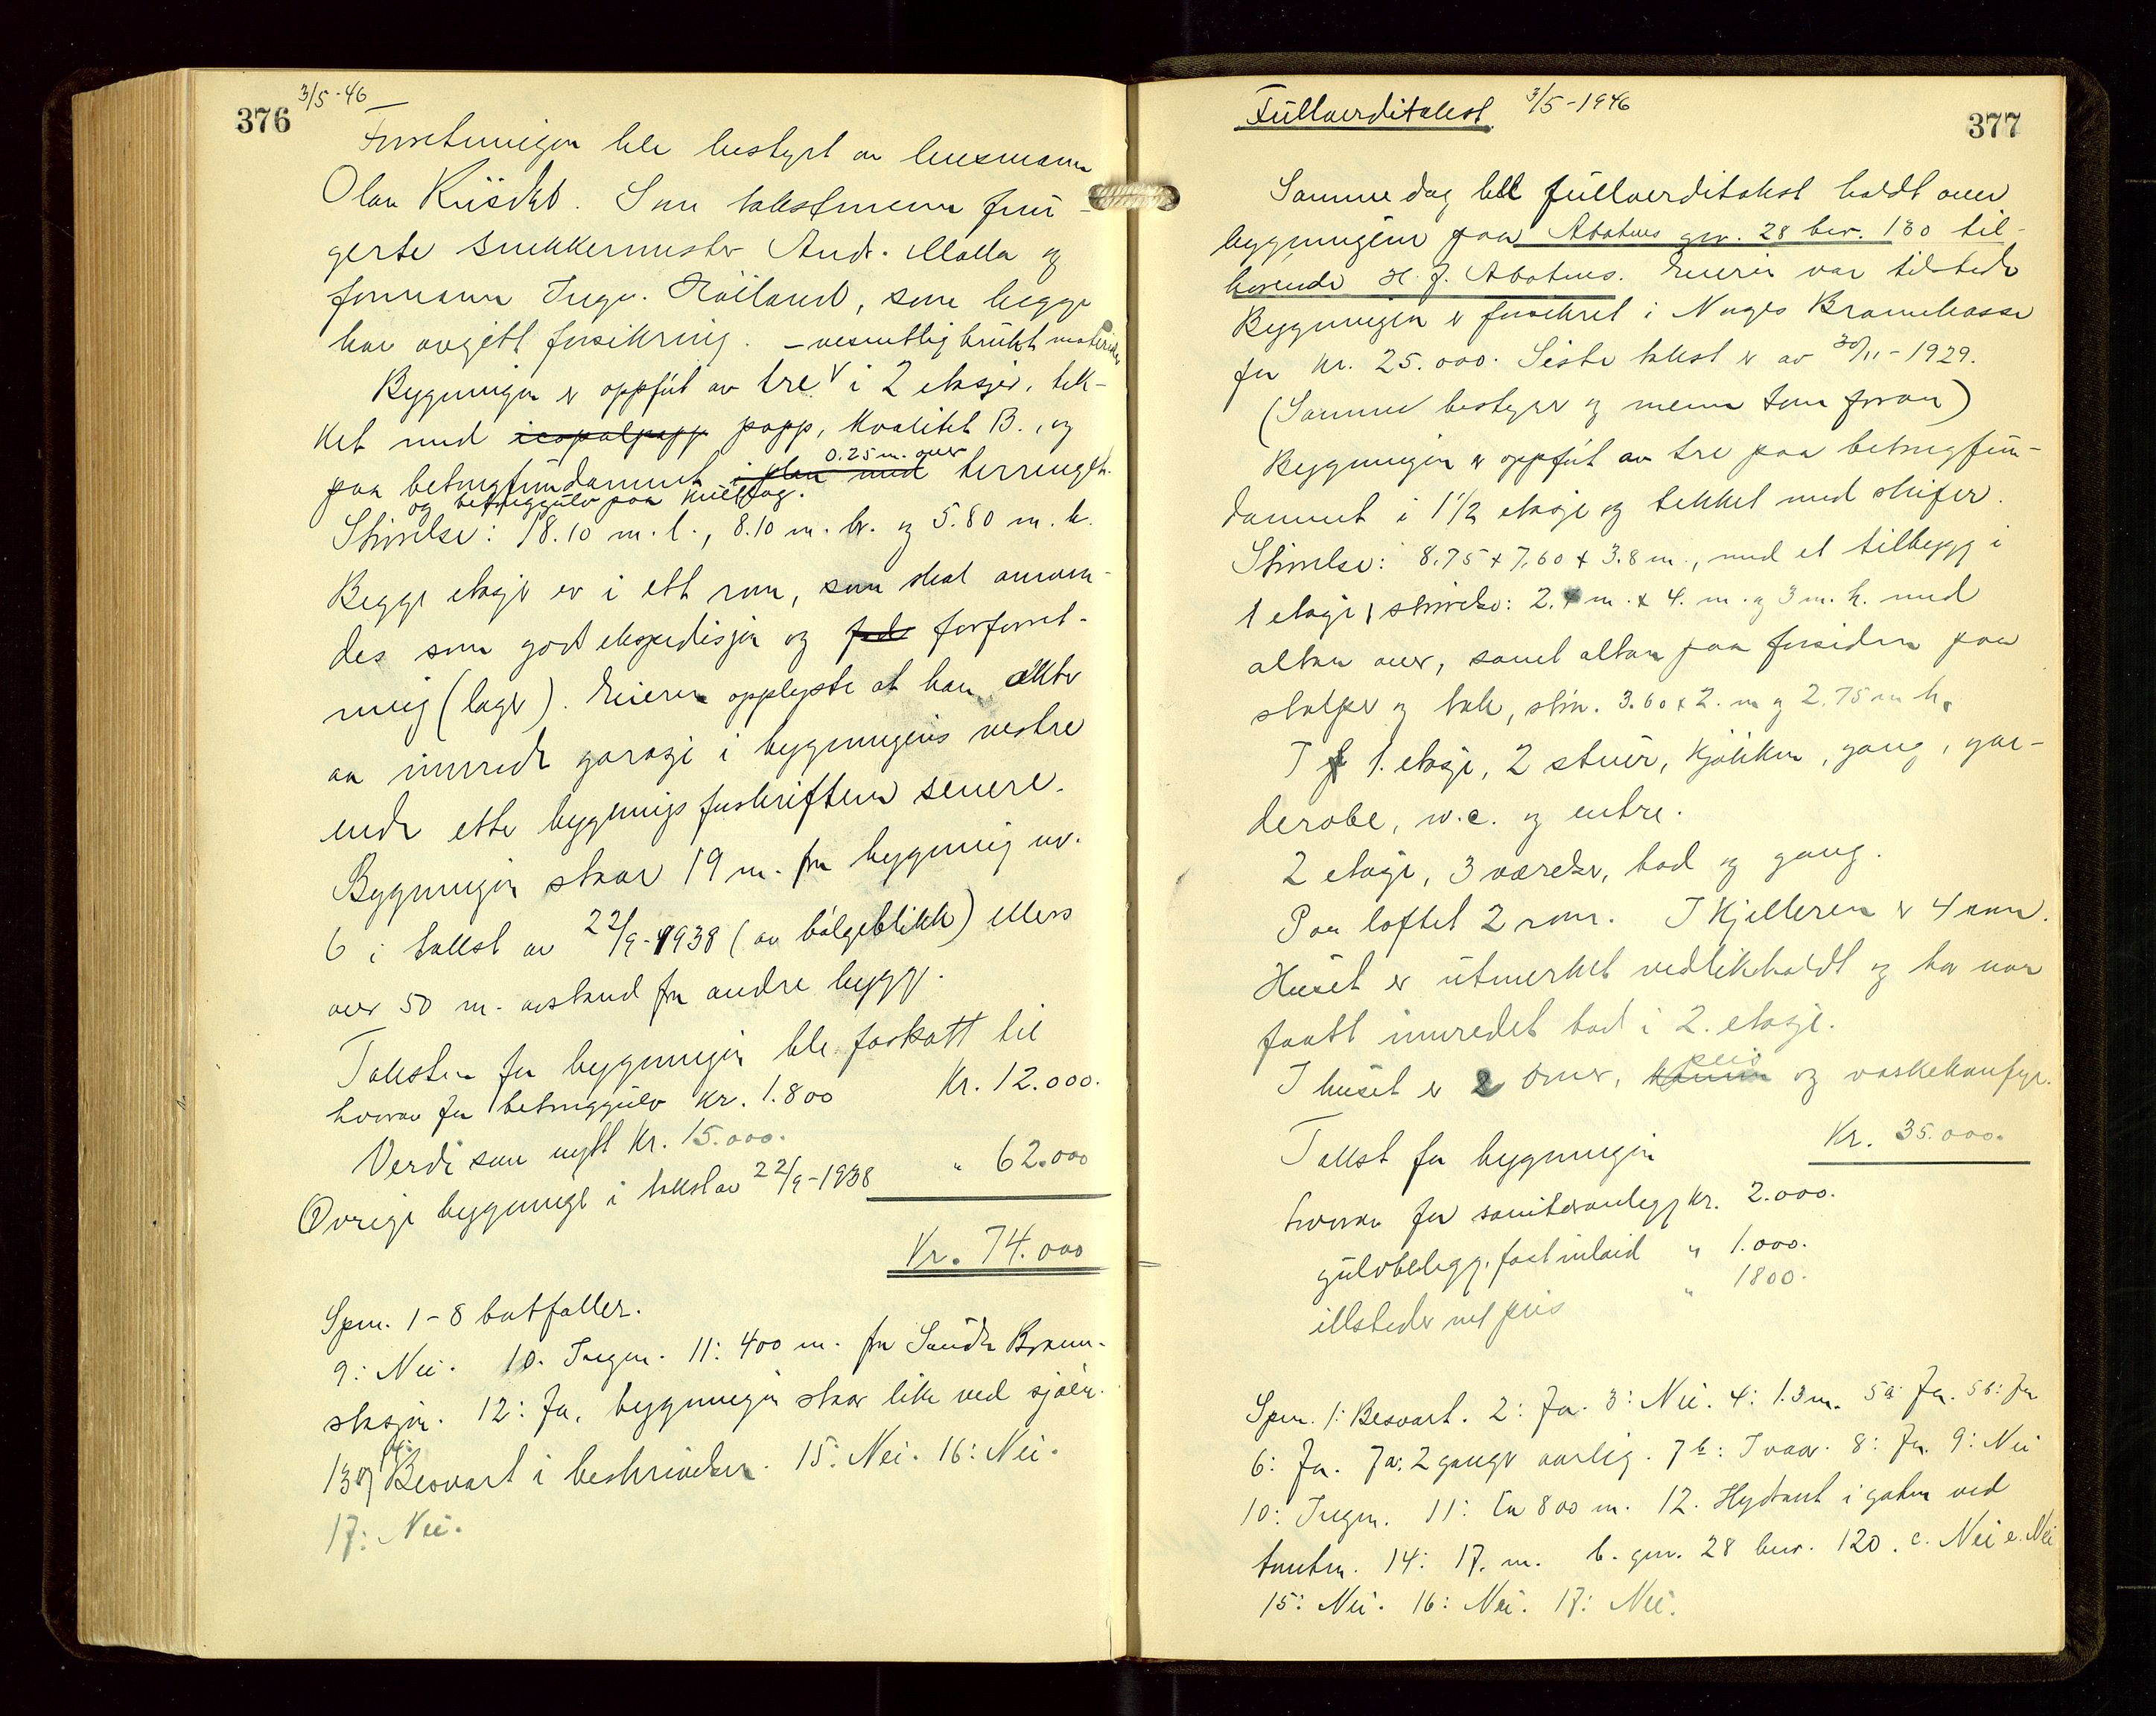 376 3/5-46
Forretningen ble bestyrt av lensmann
Olav Som takstmenn fun-
gerte snekkermester And. Malla og
formann Ingv. som begge
har avgitt forsikring. - vesentlig brukt materialer
Bygningen er oppført av tre i 2 etasjer, tek-
ket med icopalpapp papp, kvalitet B., og
0.25 m. over
paa betongfundament i plan med terrenget.
og betonggulv paa
Størrelse: 18.10 m. l., 8.10 m. br. og 5.80 m. h.
Begge etasjer er i ett rom, som skal anven-
des som godsekspedisjon og for forret-
ning (lager). Eieren opplyste at han akter
aa innrede garasje i bygningens vestre
ende etter bygningsforskriftene senere.
Bygningen staar 19 m. fra bygning nr.
6 i takst av 22/9-1938 (av bølgeblikk) ellers
over 50 m. avstand fra andre bygg.
Taksten for bygningen ble fastsatt til
hvorav for betonggulv kr. 1.800 Kr. 12.000.
Verdi som nytt kr. 15.000.
Øvrige bygninger i takst av 22/9-1938 " 62.000
Kr. 74.000
Spm. 1-8 bortfaller.
9: Nei. 10. Ingen. 11: 400 m. fra Brann-
stasjon. 12: Ja, bygningen staar like ved sjøen.
13 og 14: Besvart i beskrivelsen. 15: Nei. 16: Nei.
17: Nei.
Fullverditakst 3/5-1946 377
Samme dag ble fullverditakst holdt over
bygningen paa Abotnes gnr. 28 bnr. 130 til-
hørende H. J. Abotnes. Eieren var tilstede
Bygningen er forsikret i Norges Brannkasse
for kr. 25.000. Siste takst er av 30/11-1929.
(Samme bestyrer og menn som foran)
Bygningen er oppført av tre paa betongfun-
dament i 1 1/2 etasje og tekket med skifer.
Størrelse: 8.75 x 7.60 x 3.8 m., med et tilbygg i
1 etasje, størrelse: 2. m. x 4. m. og 3 m. h. med
altan over, samt altan paa forsiden paa
stolper og tak, stør. 3.60 x 2. m og 2.75 m h.
I 1. etasje, 2 stuer, kjøkken, gang, gar-
derobe, w.c. og entre.
2 etasje, 3 værelser, bad og gang.
Paa loftet 2 rom. I kjelleren er 4 rom.
Huset er utmerket vedlikeholdt og har nu
faatt innredet bad i 2. etasje.
peis
I huset er 2 ovner, kamin og vaskekomfyr.
Takst for bygningen Kr. 35.000.
hvorav for saniteranlegg kr. 2.000.
gulvbelegg, fast inlaid " 1.000.
illsteder med peis " 1800.
Spm. 1: Besvart. 2: Ja. 3: Nei. 4: 1.3 m. 5a: Ja. 5b: Ja
6: Ja. 7a: 2 ganger aarlig. 7b: I vaar. 8: Ja. 9: Nei
10: Ingen. 11: Ca 800 m. 12. Hydrant i gaten ved
tomten. 14: 17. m. b. gnr. 28 bnr. 120. c. Nei e. Nei
15: Nei. 16: Nei. 17: Nei.